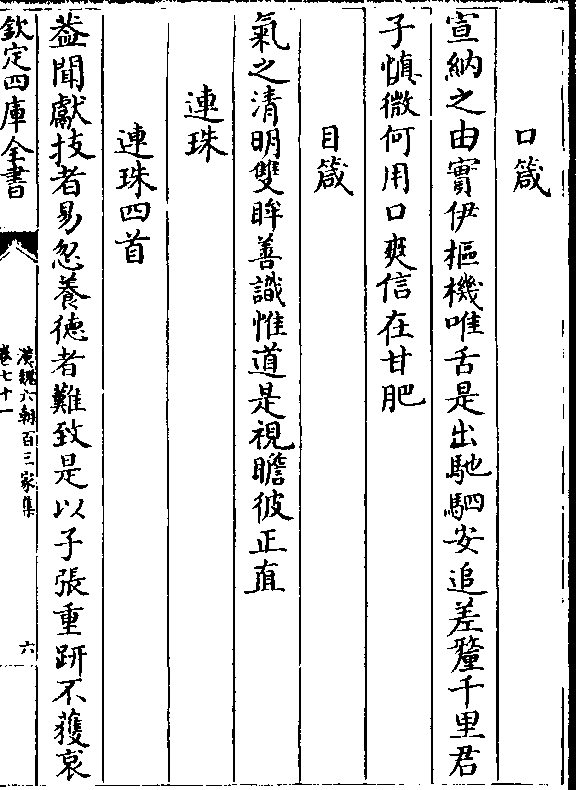 口箴
宣納之由實伊樞機唯舌是出馳駟安追差釐千里君
子慎微何用口爽信在甘肥
目箴
氣之清明雙眸善識惟道是視瞻彼正直
連珠
連珠四首
葢聞獻技者易忽養徳者難致是以子張重趼不獲哀
欽定四庫全書
漢魏六朝百三家集
卷七十一
六